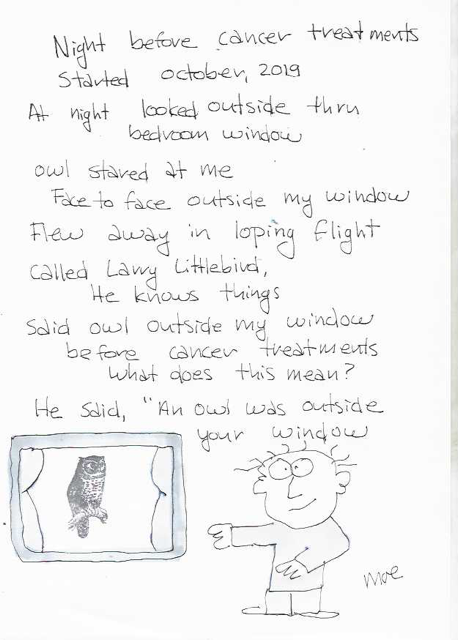 Night before cancer treatments
Started october, 2019
At night looked outside thru
bedroom window
owl stared at me
Face to face outside my window
Flew away in loping flight
called Larry Littlebird,
He knows things
Said owl outside my window
before cancer treatments
what does this mean?
He said, "An owl was outside
your window
moe